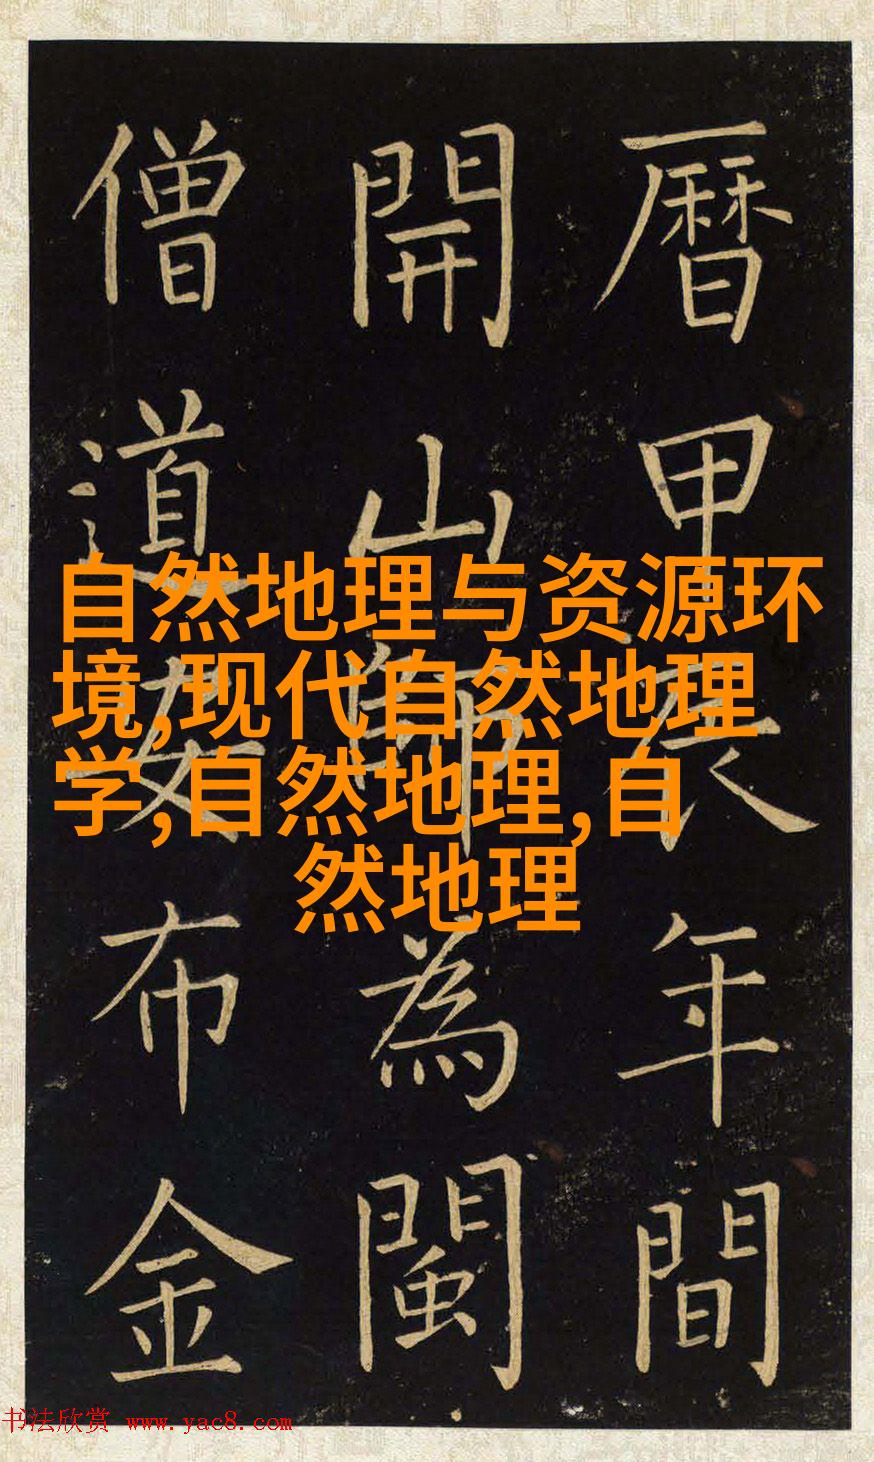 曆甲辰年間
開山師為閩
僧道布金
自然地理与资源环
境,现代自然地理
学,自然地理,自
然地理
书法欣赏 www.yac8.com